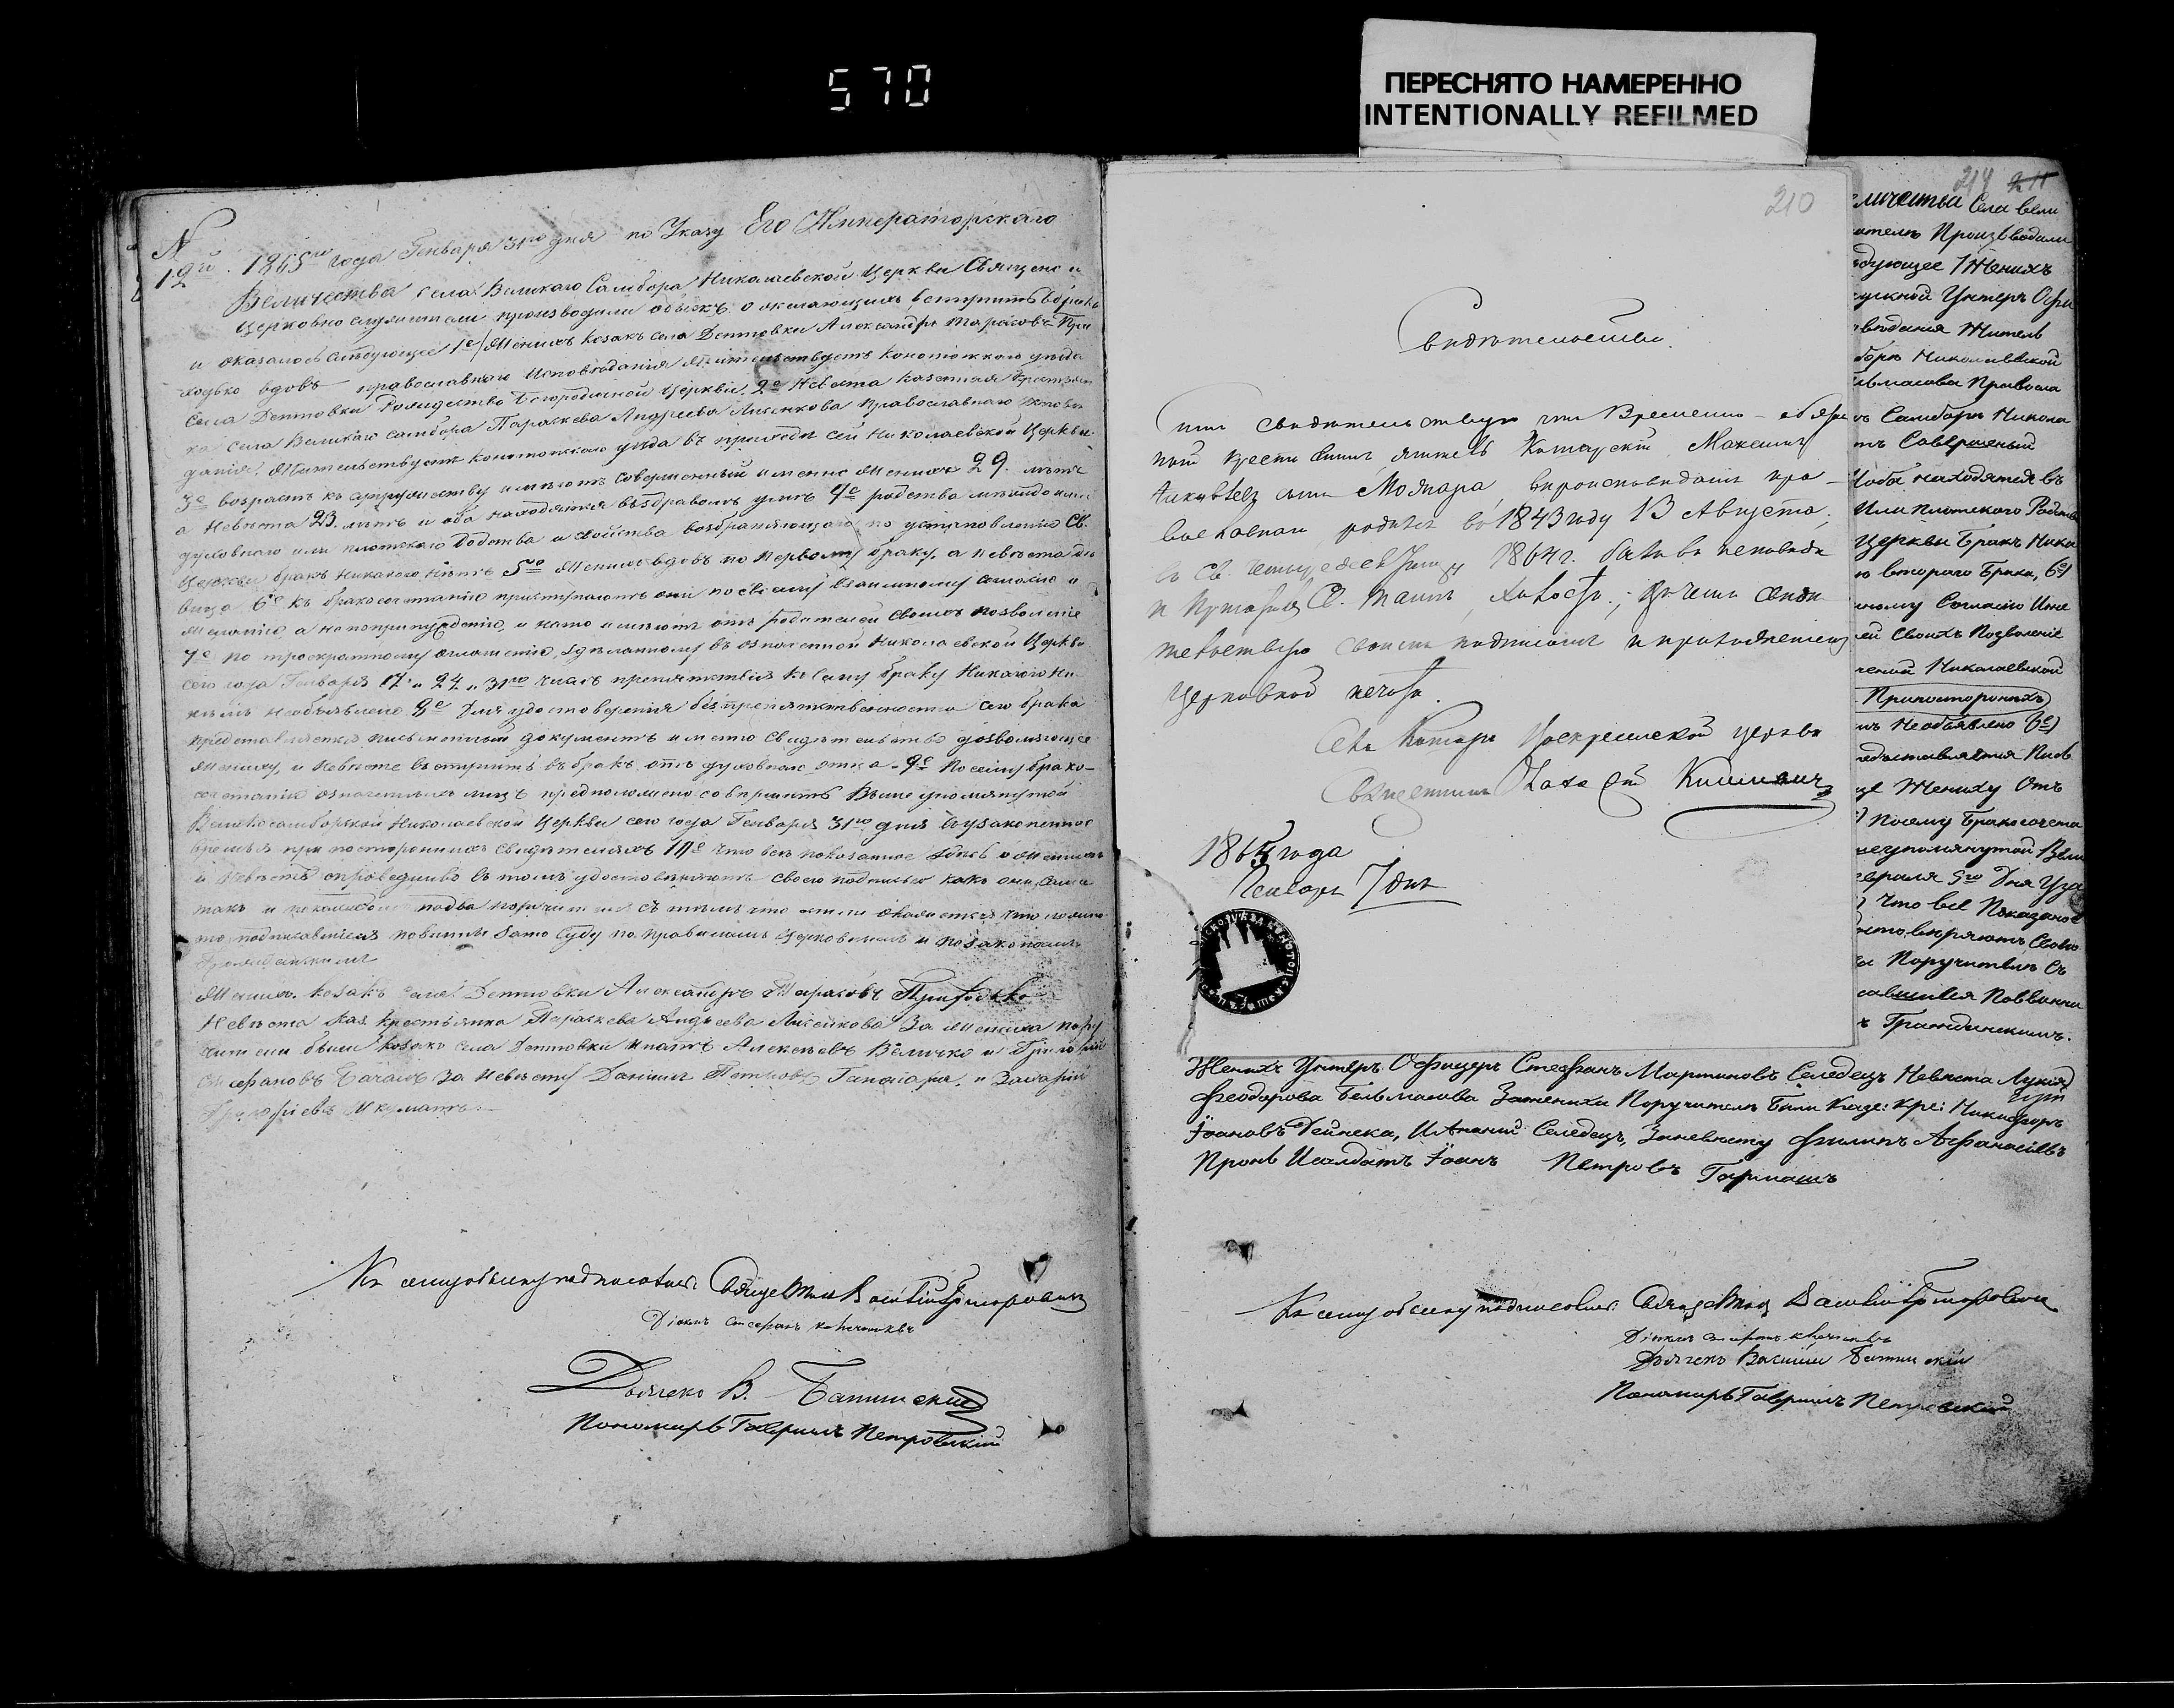 570
ПЕРЕСНЯТО НАМЕРЕННО
INTENTIONALLY REFILMED
№
19й. 1865го года Генваря 31го дня по Указу Его Императорскаго
Величества села Великаго Самбора Николаевской Церкви Священно и
церковно служители производили обыскъ о желающихъ вступить въ бракъ
и оказалось слѣдующее 1е/ Женихъ козакъ села Дептовки Александръ Тарасовъ При
ходько вдовъ православнаго исповѣданія жительствуетъ Конотопскаго уѣзда
села Дептовки Рождество Богородичной Церкви. 2е Невѣста казенная крестьян
ка села Великаго Самбора Параскева Андреева Лисенкова православнаго исповѣ
данія. Жительствуетъ Конотопскаго уѣзда въ приходѣ сей Николаевской Церкви.
3е возрастъ къ супружеству имѣютъ совершенный именно женихъ 29. лѣтъ
а невѣста 23 лѣтъ и оба находятся въ здравомъ умѣ 4е родства между ними
духовнаго или плотскаго родства и свойства возбраняющаго по установленію Св.
Церкви бракъ никакого нѣтъ 5е Женихъ вдовъ по первому браку, а невѣста дѣ
вица 6е къ бракосочетанію приступаютъ они по своему взаимному согласію и
желанію, а не по принужденію, и на то имѣютъ отъ родителей своихъ позволеніе
7е по троекратному оглашенію, здѣланному въ означенной Николаевской Церкви
сего года Генваря 17. и 24 и 31го числъ препятствія къ сему браку никакого ни
кѣмъ не объявлено 8е Для удостоверенія безпрепятственности сего брака
представляется письменный документъ именно свидѣтельство дозволяющее
жениху, и невѣсте вступить въ бракъ отъ духовнаго отца. 9е По сему брако-
сочетаніе означенныхъ лицъ предположено совершить Выше упомянутой
Великосамборской Николаевской Церкви сего года Генваря 31го дня въ узаконенное
время при постороннихъ свидѣтеляхъ 10е Что все показанное здесь о женихѣ
и невѣсте справедливо въ томъ удостовѣряютъ своею подписью какъ они сами
такъ и по каждомъ по два поручителя съ тѣмъ что если окажется что ложно
то подписавшіеся повинны за то суду по правиламъ церковнымъ и по законамъ
гражданскимъ
Женихъ козакъ села Дептовки Александръ Тарасовъ Приходько
Невѣста каз. крестьянка Параскева Андреева Лисенкова За жениха пору
чителн были козаки села Дептовки Игнатъ Алексѣевъ Величко и Григорій
Стефановъ за невѣсту Даніилъ Петровъ и Захарій
Къ сему обыску подписались: Священникъ Василій Григоровичъ
Діяконъ Стефанъ
Дьячекъ В.
Пономарь Гавріилъ Петровскій
210
Свидѣтельство.
Симъ свидѣтельствую что Временно-обязан
ный крестьянинъ житель Максимъ
сынъ вѣроисповѣданія пра-
вославнаго родился въ 1843 году 13 Августа;
въ Св. 1864 г. былъ въ исповѣди
и Св. Таинъ въ чемъ свидѣ
тельствую своимъ подписомъ и приложеніемъ
Церковной печати.
Села Воскресенской церкви
Священникъ
1865 года
Генваря 7 дня
214
личества Села Вели
ители Производили
ѣдующее 1 Женихъ
ускной Унтеръ Офи
вѣданія Житель
боръ Николаевской
льмасова Правосла
ъ Самборъ Никола
тъ Совершеный
оба находятся въ
Или плотского Родства
Церкви Бракъ Ника
ю второго Брака, 6е)
ному Согласію Ине
ей Своихъ Позволеніе
ченой Николаевской
Припосторонихъ
мъ Необъявлено 8е)
едставляется Пись
це Жениху Отъ
Посему Бракосочета
неупомянутой Вели
евраля 5го Дня Уза
Что все Показаное
стовѣряютъ Своею
ва Поручители Съ
савшiеся Повинни
ъ Гражданскимъ.
Женихъ Унтеръ Офицеръ Стефанъ Мартиновъ Селедецъ Невѣста Лукія
Феодорова Бельмасова За жениха Поручители Били Казе: кре: Никифоръ
Іоановъ Дейнека, И Селедецъ, За невѣсту Филипъ Афанасіевъ
Пронь И салдатъ Іоанъ Петровъ Гармашъ
Къ сему обыску подписались: Священникъ Василій Григоровичъ
Діяконъ Стефанъ
Дьячекъ Василій
Пономарь Гавріилъ Петровскій